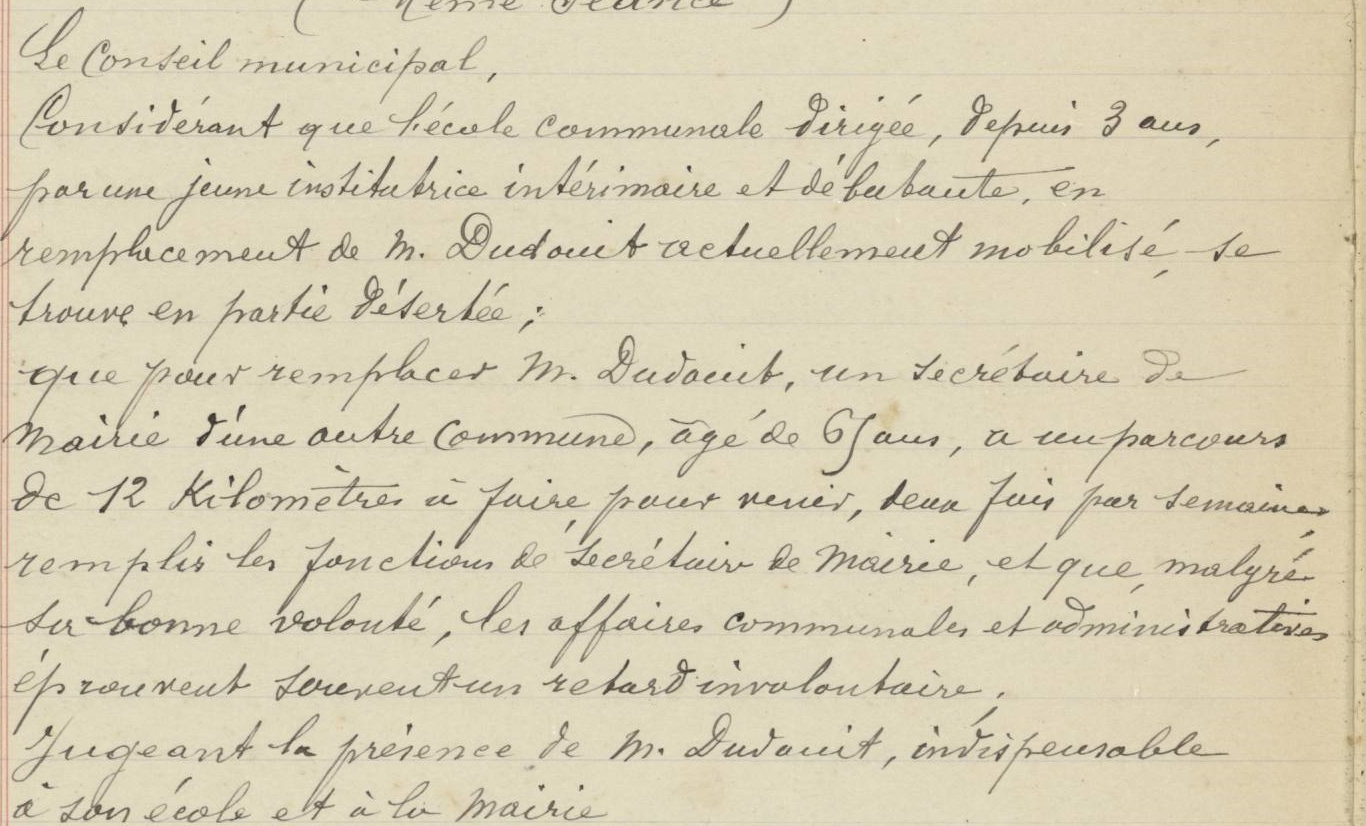 (Même séance)
Le Conseil municipal,
Considérant que l'école communale dirigée, depuis 3 ans,
par une jeune institutrice intérimaire et débutante, en
remplacement de M. Dudouit actuellement mobilisé, se
trouve en partie désertée;
que pour remplacer M. Dudouit, un secrétaire de
Mairie d'une autre Commune, âgé de 65 ans, a un parcours
de 12 Kilomètres à faire, pour venir, deux fois par semaine,
remplir les fonctions de secrétaire de Mairie, et que, malgré
sa bonne volonté, les affaires communales et administratives
éprouvent souvent un retard involontaire,
Jugeant la présence de M. Dudouit, indispensable
à son école et à la Mairie